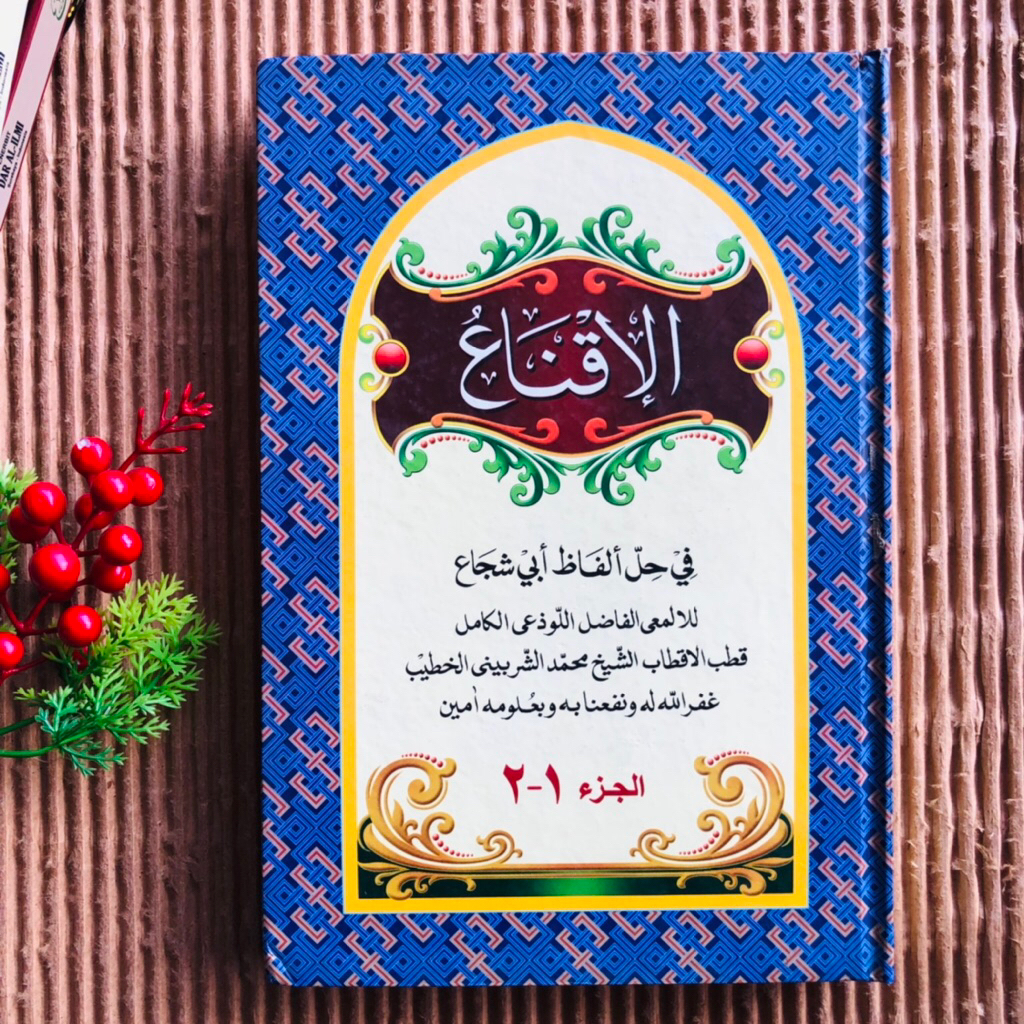 الإقْنَاعُ
فِيْ حِلّ ألفَاظ أبيْ شجَاع
للالمعى الفاضل اللّوذعى الكامل
قطب الاقطاب الشّيخ محمّد الشّربينى الخطيبْ
غفر اللّه له ونفعنا به وبعُلومه اٰمين
الجزء ١-٢
DAR AL-ILMI